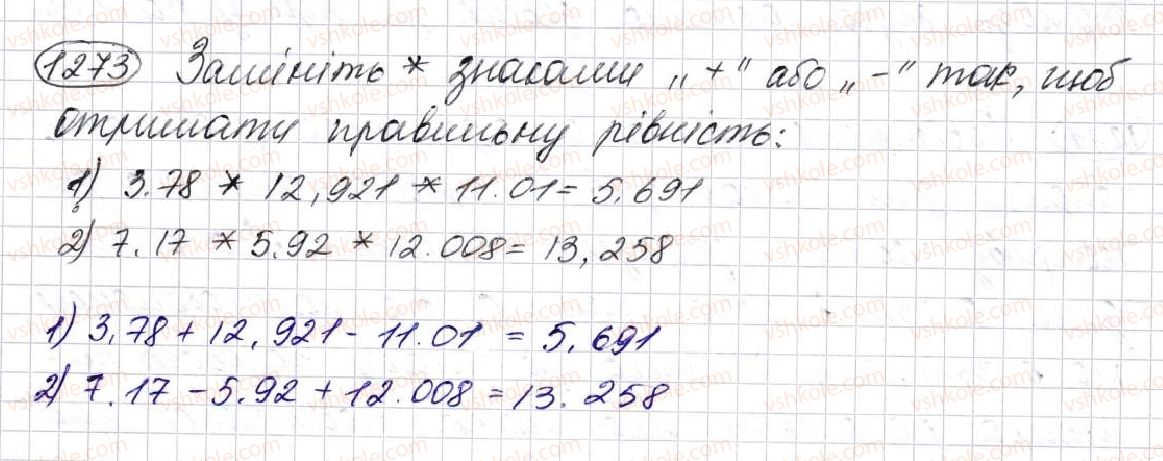 1273 Замініть * знаками „+" або „-" так, щоб
отримати правильну рівність:
1) 3.78 * 12,921 * 11.01 = 5.691
2) 7.17 * 5.92 * 12.008 = 13,258
1) 3,78 + 12,921 - 11.01 = 5,691
2) 7.17 - 5.92 + 12.008 = 13.258